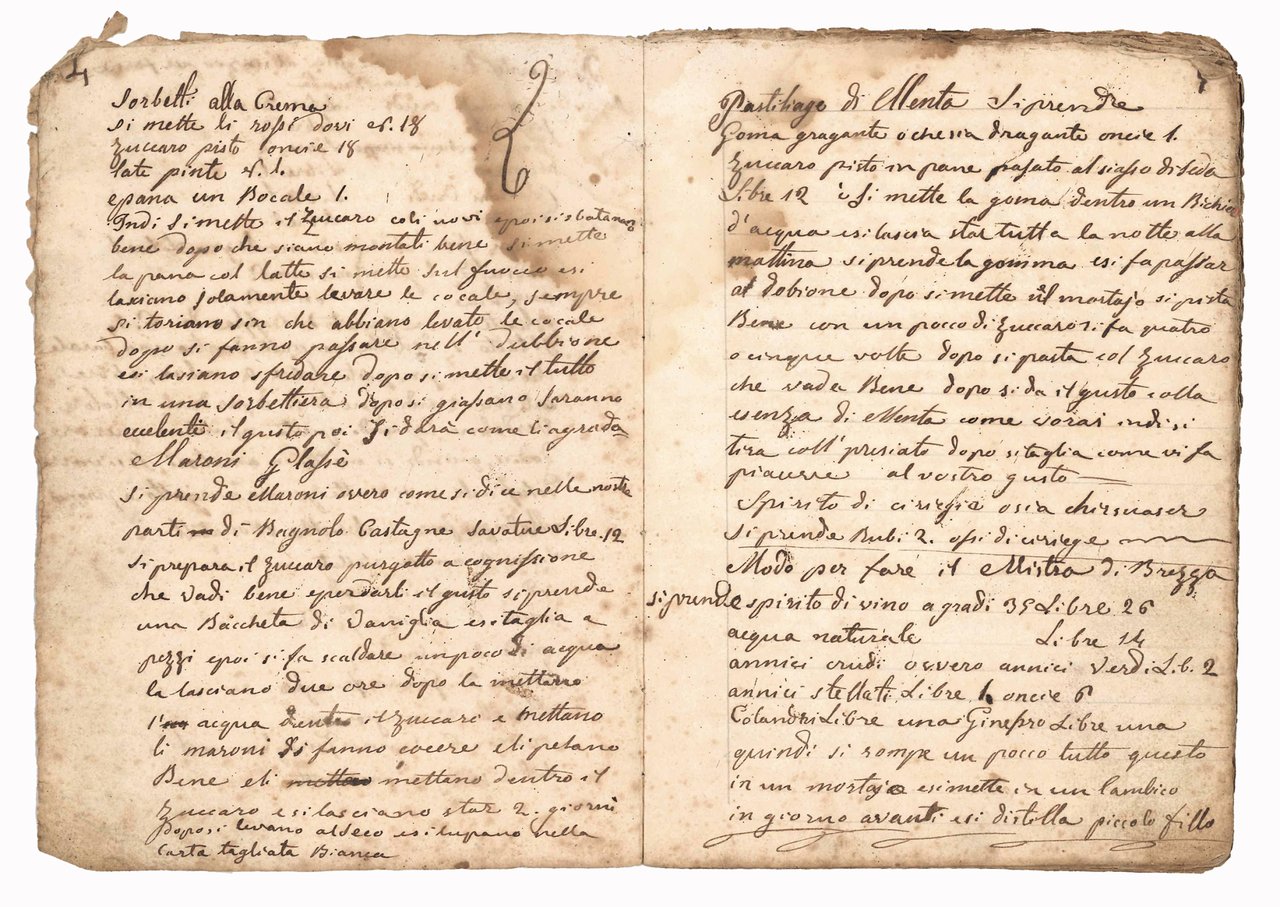 4
Sorbetti alla Crema
si mette li rossi dovi n. 18
zuccaro pisto oncie 18
late pinte n. 1.
epana un Bocale 1.
Indi si mette il Zuccaro coli uovi epoi si sbatanano
bene dopo che siano montati bene si mette
la pana col latte si mette sul fuoco esi
lasciano solamente levare le cocale, sempre
si toriano sin che abbiano levato le cocale
dopo si fanno passare nell' dubbione
esi lasiano sfredare dopo si mette il tutto
in una sorbettiera dopo si giassano saranno
ecelenti il gusto poi si darà come li agrada
Maroni Glassè
si prende Maroni ovvero come si dice nelle nostre
parti di Bagnolo Castagne Savature Libre. 12
si prepara il zuccaro purgatto a cognissione
che vadi bene eperdarli il gusto si prende
una Baccheta di Vaniglia esitaglia a
pezzi epoi si fa scaldare un poco di acqua
la lasciano due ore dopo la mettarro
l' acqua dentro il Zuccari e mettano
li maroni si fanno cocere eli pelano
Bene eli mettano dentro il
zuccaro esi lasciano star 2. giorni
Doposi levano alseco esi lupano nella
Carta tagliata Bianca
Pastiliage di Menta si prende
Goma gragante o chesia dragante oncie 1.
Zuccaro pisto in pane passato al siasso di Seda
Libre 12 si mette la goma dentro un Bichier
d'acqua esi lascia star tutta la notte alla
mattina si prende la gomma esi fa passar
al dobione dopo si mette nel mortajo si pista
Bene con un pocco di Zuccaro si fa quatro
o cinque volte dopo si pasta col Zuccaro
che vada Bene dopo si da il gusto colla
esenza di Menta come vorai indi si
tira coll' presiato dopo sitaglia come vi fa
piacerre al vostro gusto
Spirito di ciriegie osia chirsuaser
si prende Rubi 2. ossi di ciriege
Modo per fare il Mistrà di Brezza
si prende spirito di vino a gradi 35 Libre 26
acqua naturale Libre 14
annici crudi ovvero annici verdi Lib. 2
annici stellati Libre 1. oncie 6
Colandri Libre una Ginepro Libre una
quindi si rompe un pocco tutto questo
in un mortajo esimette in un lambico
in giorno avanti esi distilla piccolo fillo